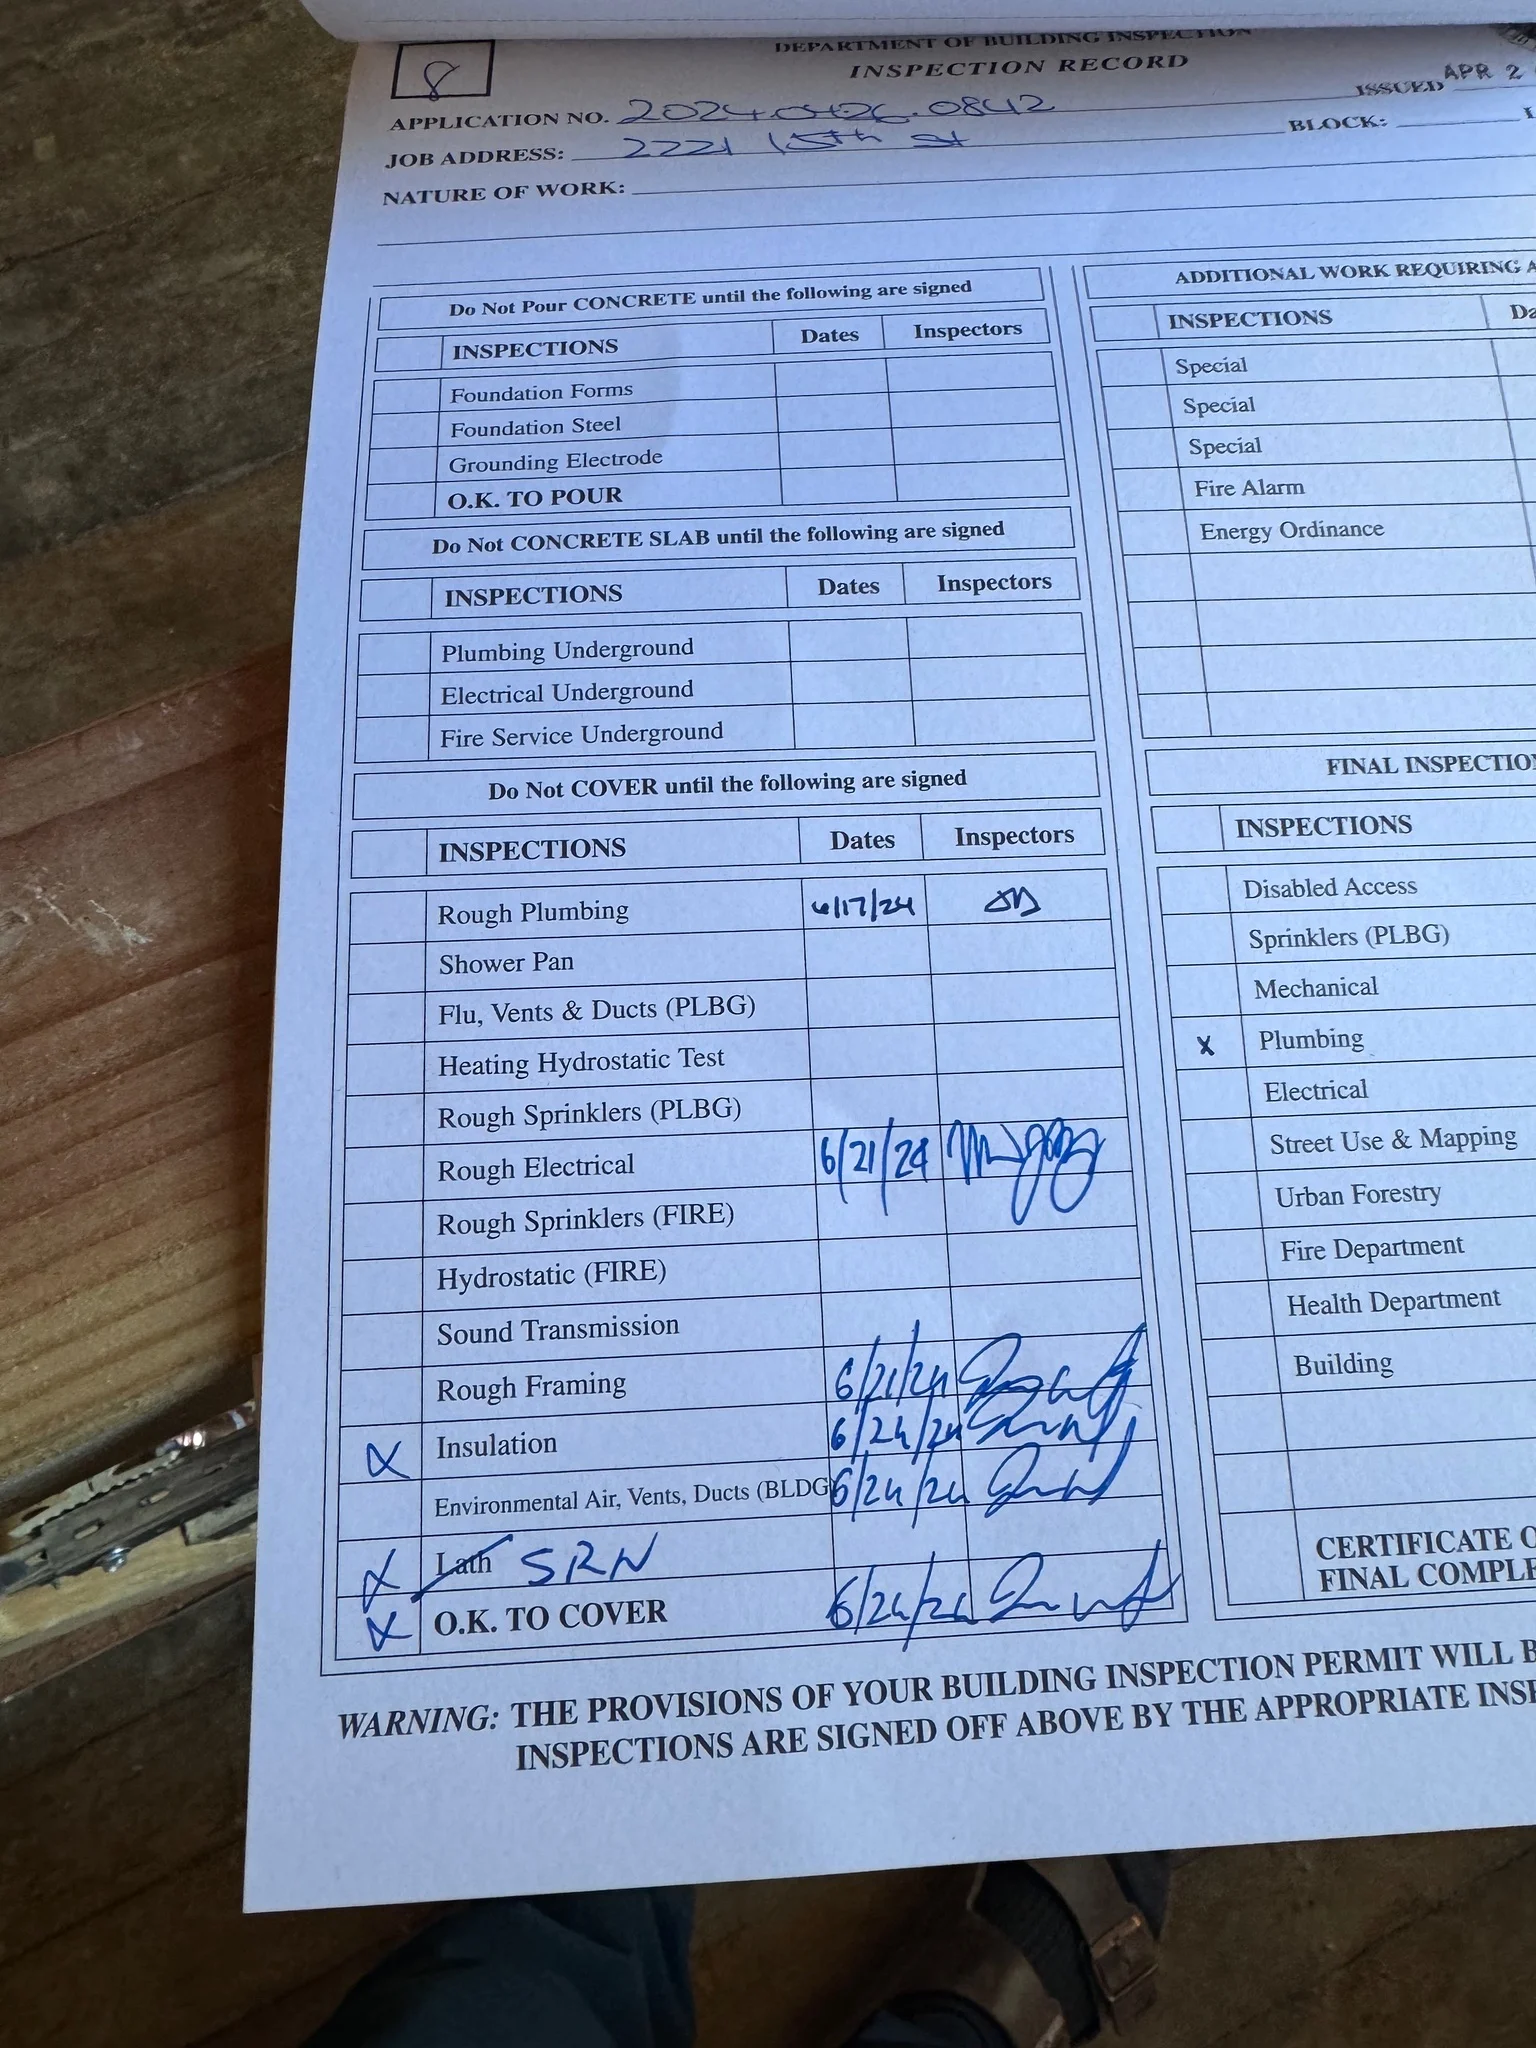 8
DEPARTMENT OF BUILDING INSPECTION
INSPECTION RECORD
ISSUED APR 2
APPLICATION NO. 2024.0426.0842
JOB ADDRESS: 2221 15th st
BLOCK:
NATURE OF WORK:
Do Not Pour CONCRETE until the following are signed
INSPECTIONS Dates Inspectors
Foundation Forms
Foundation Steel
Grounding Electrode
O.K. TO POUR
Do Not CONCRETE SLAB until the following are signed
INSPECTIONS Dates Inspectors
Plumbing Underground
Electrical Underground
Fire Service Underground
Do Not COVER until the following are signed
INSPECTIONS Dates Inspectors
Rough Plumbing 6/17/24
Shower Pan
Flu, Vents & Ducts (PLBG)
Heating Hydrostatic Test
Rough Sprinklers (PLBG)
Rough Electrical 6/21/24
Rough Sprinklers (FIRE)
Hydrostatic (FIRE)
Sound Transmission
Rough Framing 6/21/24
X Insulation 6/24/24
Environmental Air, Vents, Ducts (BLDG) 6/24/24
X Lath SRN
X O.K. TO COVER 6/24/24
ADDITIONAL WORK REQUIRING A
INSPECTIONS Da
Special
Special
Special
Fire Alarm
Energy Ordinance
FINAL INSPECTION
INSPECTIONS
Disabled Access
Sprinklers (PLBG)
Mechanical
X Plumbing
Electrical
Street Use & Mapping
Urban Forestry
Fire Department
Health Department
Building
CERTIFICATE O
FINAL COMPLE
WARNING: THE PROVISIONS OF YOUR BUILDING INSPECTION PERMIT WILL B
INSPECTIONS ARE SIGNED OFF ABOVE BY THE APPROPRIATE INSP